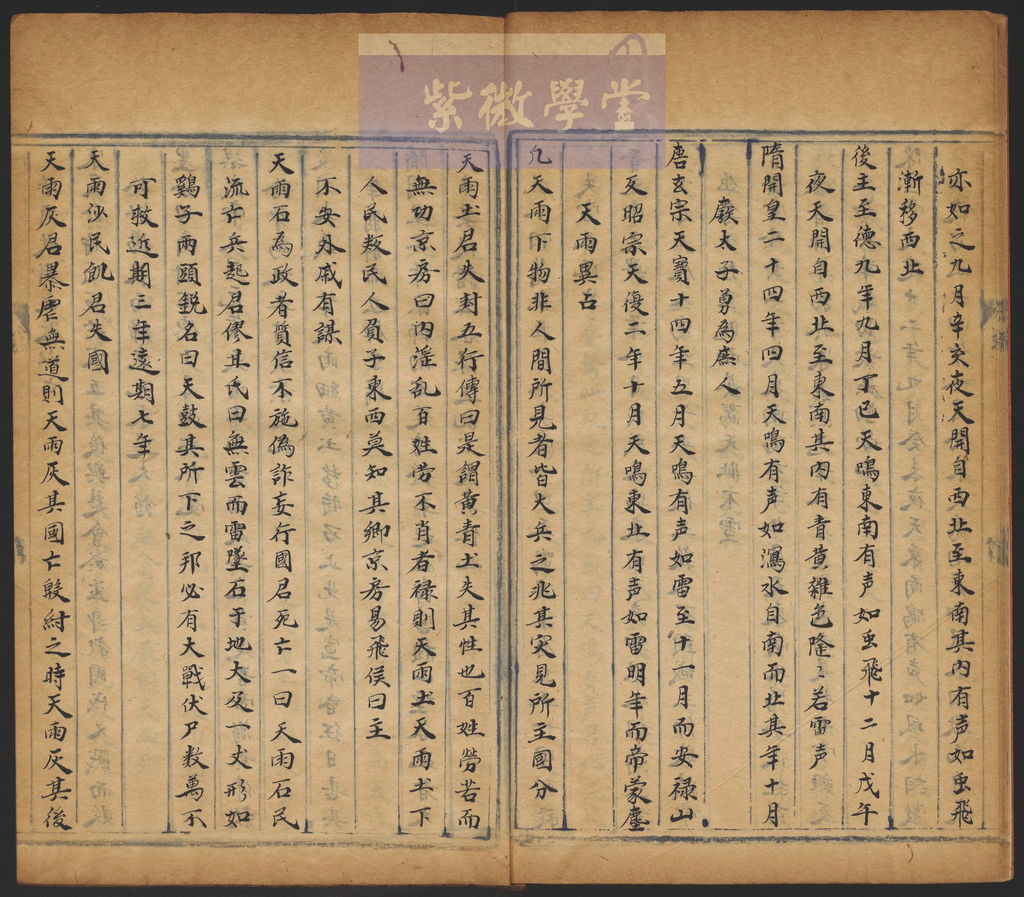 紫微學堂
亦如之九月辛亥夜天開自西北至東南其内有声如虫飛
漸移西北
後主至德九年九月丁巳天鳴東南有声如虫飛十二月戊午
夜天開自西北至東南其内有青黄雜色隆〻若雷声
隋開皇二十四年四月天鳴有声如瀉水自南而北其年十月
廢太子勇為庶人
唐玄宗天寶十四年五月天鳴有声如雷至十一月而安禄山
反昭宗天復二年十月天鳴東北有声如雷明年而帝蒙塵
天雨異占
凢天雨下物非人間所見者皆大兵之兆其灾見所主國分
天雨土君失封五行傳曰是謂黄青土失其性也百姓勞若而
無功京房曰内滛乱百姓労不肖者禄則天雨土天雨土下
人民叛民人負子東西莫知其卿京房易飛侯曰主
不安外戚有謀
天雨石為政者質信不施偽詐妄行國君死亡一曰天雨石民
流亡兵起君僇且氏曰無雲而雷墜石于地大及一丈形如
鷄子兩頭銳名曰天鼓其所下之邦必有大戰伏尸数萬不
可救近期三年遠期七年
天雨沙民飢君失國
天雨灰君暴虐無道則天雨灰其國亡殷紂之時天雨灰其後